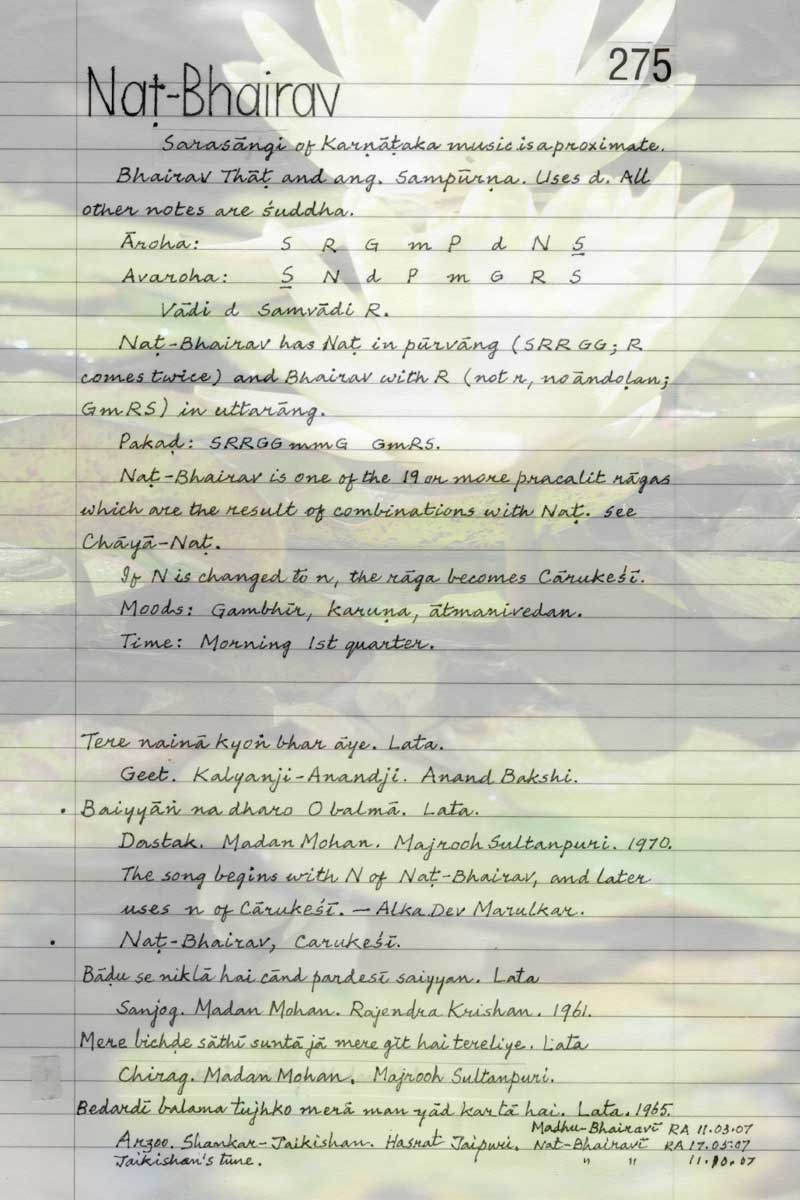 275
Naṭ-Bhairav
Sarasāngi of Karṇāṭaka music is aproximate.
Bhairav Thāṭ and ang. Sampūrṇa. Uses d. All
other notes are śuddha.
Āroha: S R G m P d N S̲
Avaroha: S̲ N d P m G R S
Vādi d Samvādi R.
Naṭ-Bhairav has Naṭ in pūrvāng (SRR GG; R
comes twice) and Bhairav with R (not r, no āndoḷan;
GmRS) in uttarāng.
Pakaḍ: SRRGGmmG GmRS.
Naṭ-Bhairav is one of the 19 or more pracalit rāgas
which are the result of combinations with Naṭ. See
Chāyā-Naṭ.
If N is changed to n, the rāga becomes Cārukeśī.
Moods: Gambhīr, karuṇa, ātmanivedan.
Time: Morning 1st quarter.
Tere nainā kyoṅ bhar āye. Lata.
Geet. Kalyanji-Anandji. Anand Bakshi.
• Baiyyāṅ na dharo O balmā. Lata.
Dastak. Madan Mohan. Majrooh Sultanpuri. 1970.
The song begins with N of Naṭ-Bhairav, and later
uses n of Cārukeśī. — Alka Dev Marulkar.
• Naṭ-Bhairav, Carukeśī.
Bāḍu se niklā hai cānd pardesī saiyyan. Lata
Sanjog. Madan Mohan. Rajendra Krishan. 1961.
Mere bichḍe sāthī suntā jā mere gīt hai tereliye. Lata
Chirag. Madan Mohan. Majrooh Sultanpuri.
Bedardī balama tujhko merā man yād kartā hai. Lata. 1965.
Madhu-Bhairavī RA 11.03.07
Arzoo. Shankar-Jaikishan. Hasrat Jaipuri. Nat-Bhairavī RA 17.05.07
Jaikishan's tune. " " 11.10.07